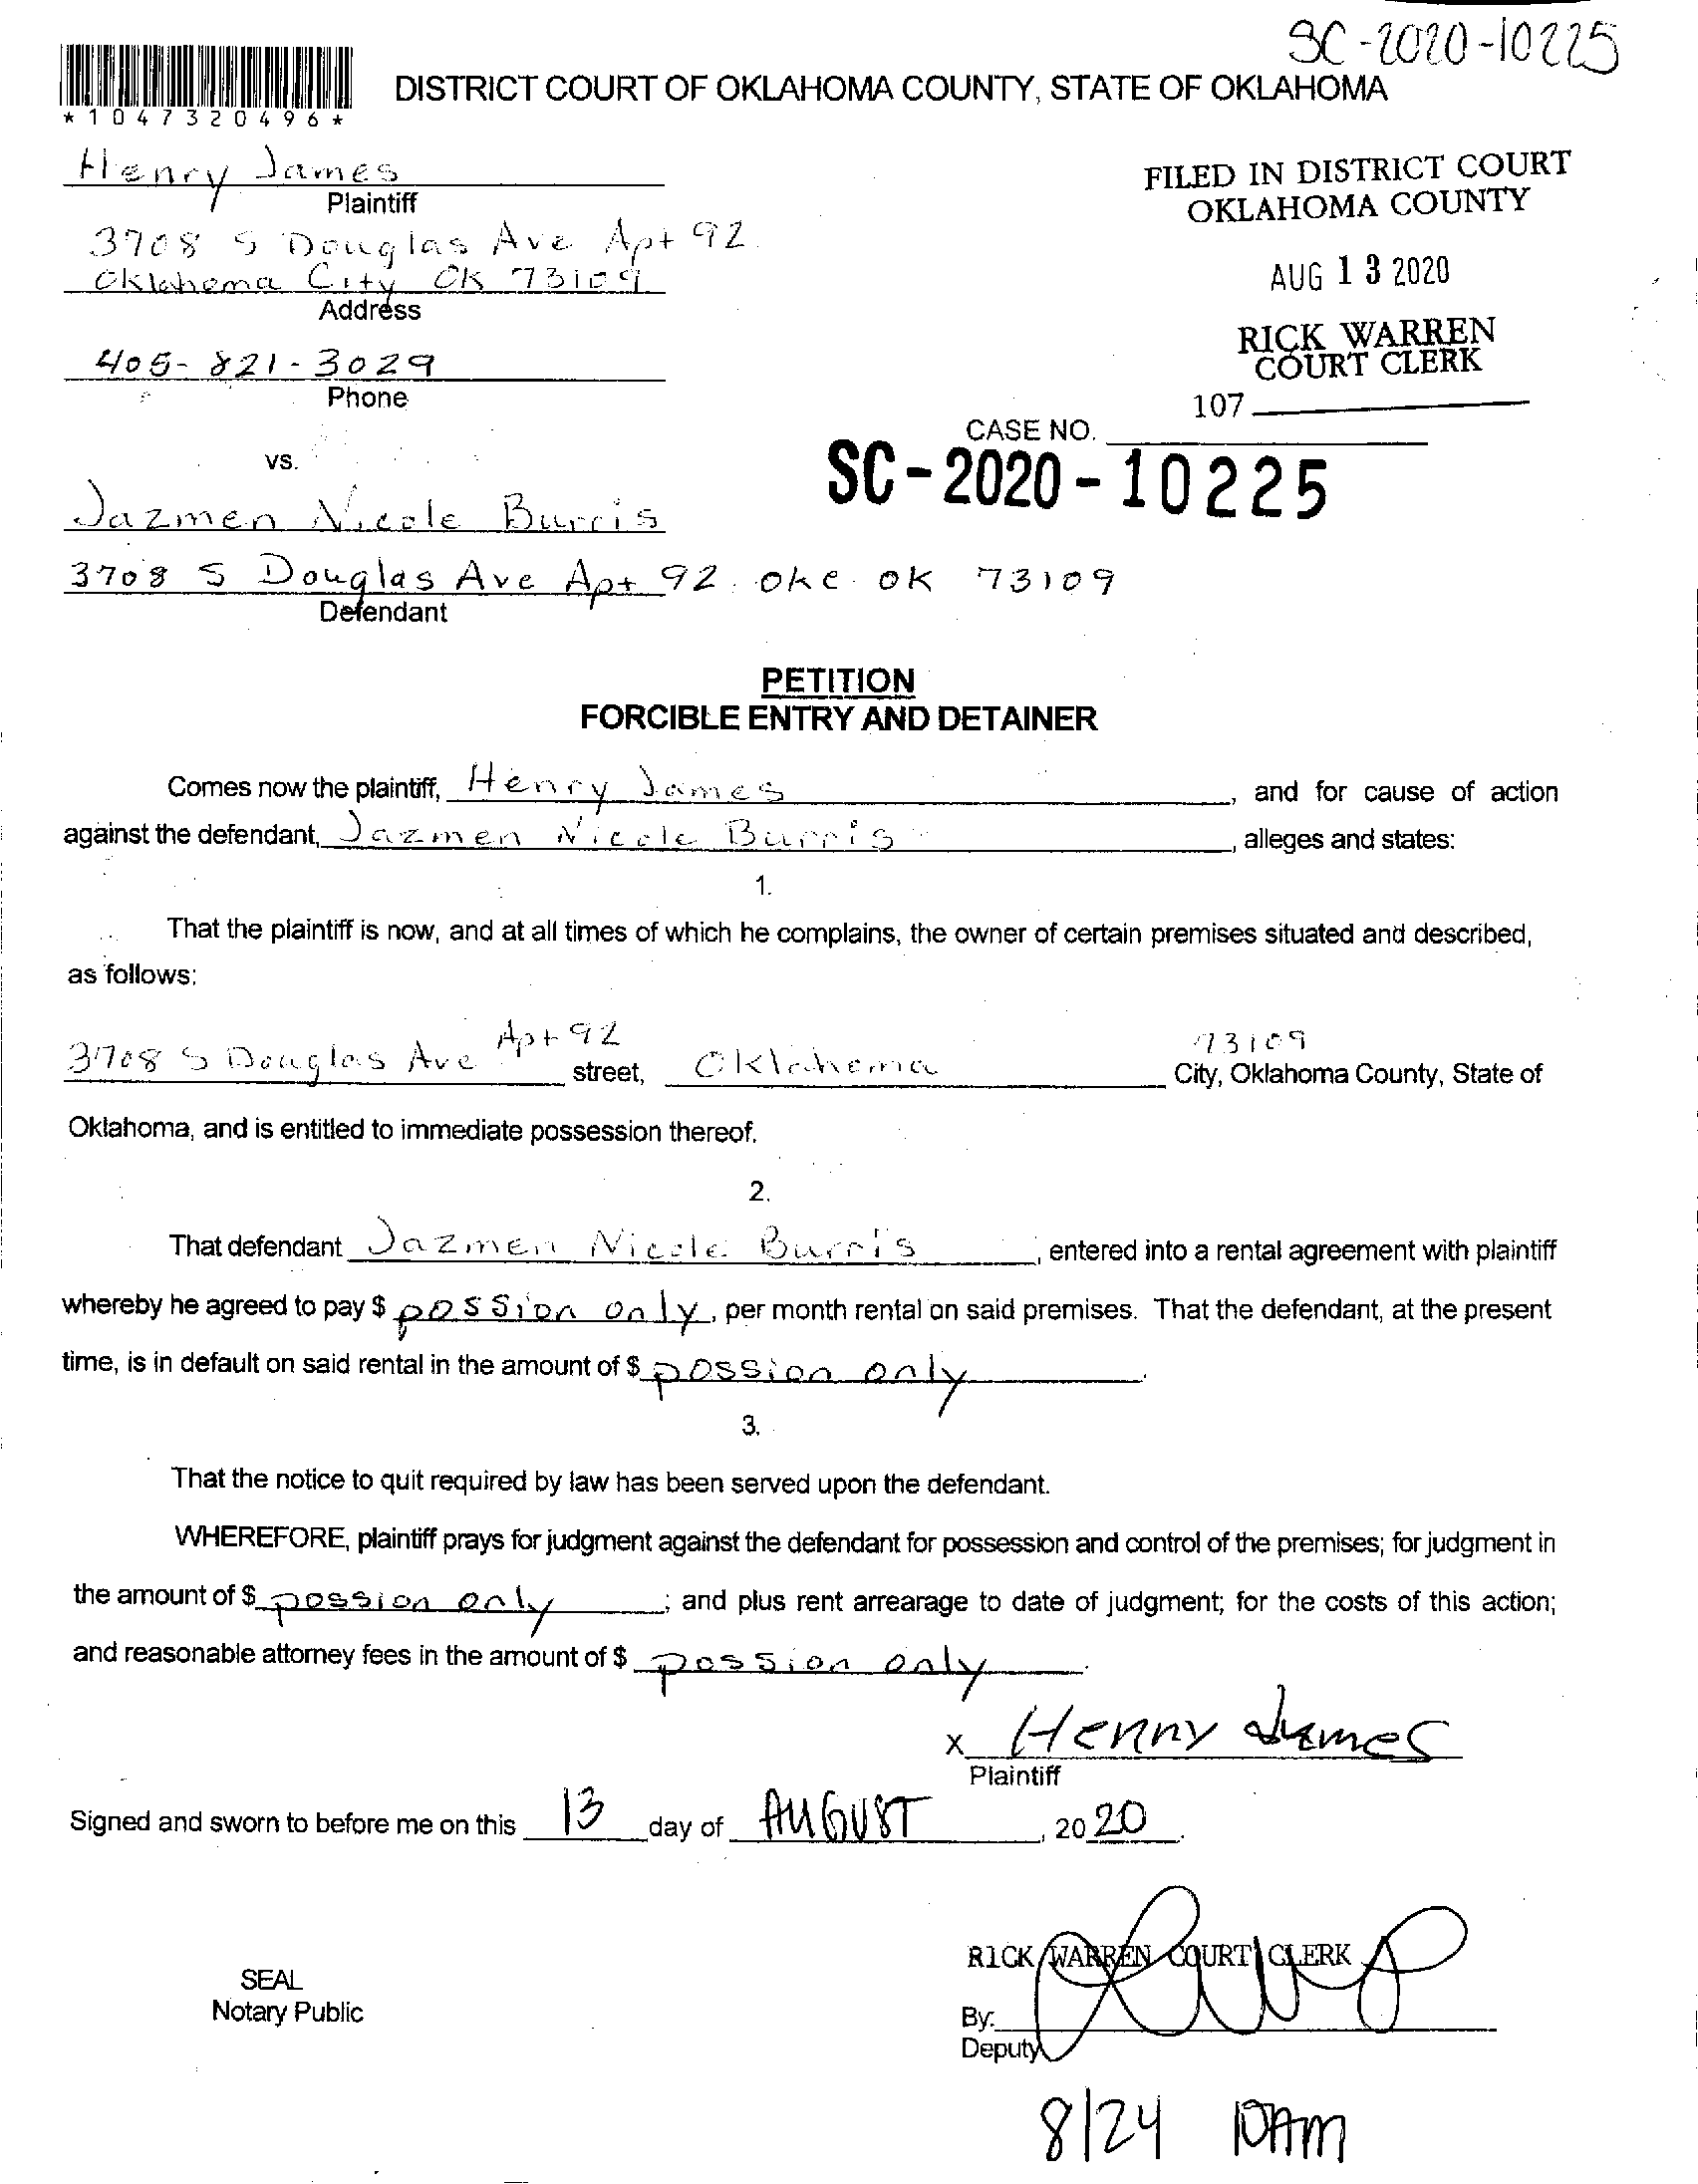 SC-2020-10225
*1047320496*
DISTRICT COURT OF OKLAHOMA COUNTY, STATE OF OKLAHOMA
Henry James
Plaintiff
3708 S Douglas Ave Apt 92
Oklahoma City OK 73109
Address
405-821-3029
Phone
FILED IN DISTRICT COURT
OKLAHOMA COUNTY
AUG 13 2020
RICK WARREN
COURT CLERK
107
CASE NO.
SC-2020-10225
vs.
Jazmen Nicole Burris
3708 S Douglas Ave Apt 92 okc ok 73109
Defendant
PETITION
FORCIBLE ENTRY AND DETAINER
Comes now the plaintiff, Henry James, and for cause of action
against the defendant, Jazmen Nicole Burris, alleges and states:
1.
That the plaintiff is now, and at all times of which he complains, the owner of certain premises situated and described,
as follows:
3708 S Douglas Ave Apt 92 street, Oklahoma 73109 City, Oklahoma County, State of
Oklahoma, and is entitled to immediate possession thereof.
2.
That defendant Jazmen Nicole Burris, entered into a rental agreement with plaintiff
whereby he agreed to pay $ possion only, per month rental on said premises. That the defendant, at the present
time, is in default on said rental in the amount of $ possion only.
3.
That the notice to quit required by law has been served upon the defendant.
WHEREFORE, plaintiff prays for judgment against the defendant for possession and control of the premises; for judgment in
the amount of $ possion only; and plus rent arrearage to date of judgment; for the costs of this action;
and reasonable attorney fees in the amount of $ possion only.
X Henry James
Plaintiff
Signed and sworn to before me on this 13 day of AUGUST, 2020.
RICK WARREN COURT CLERK
SEAL
Notary Public
By:
Deputy
8/24 10AM